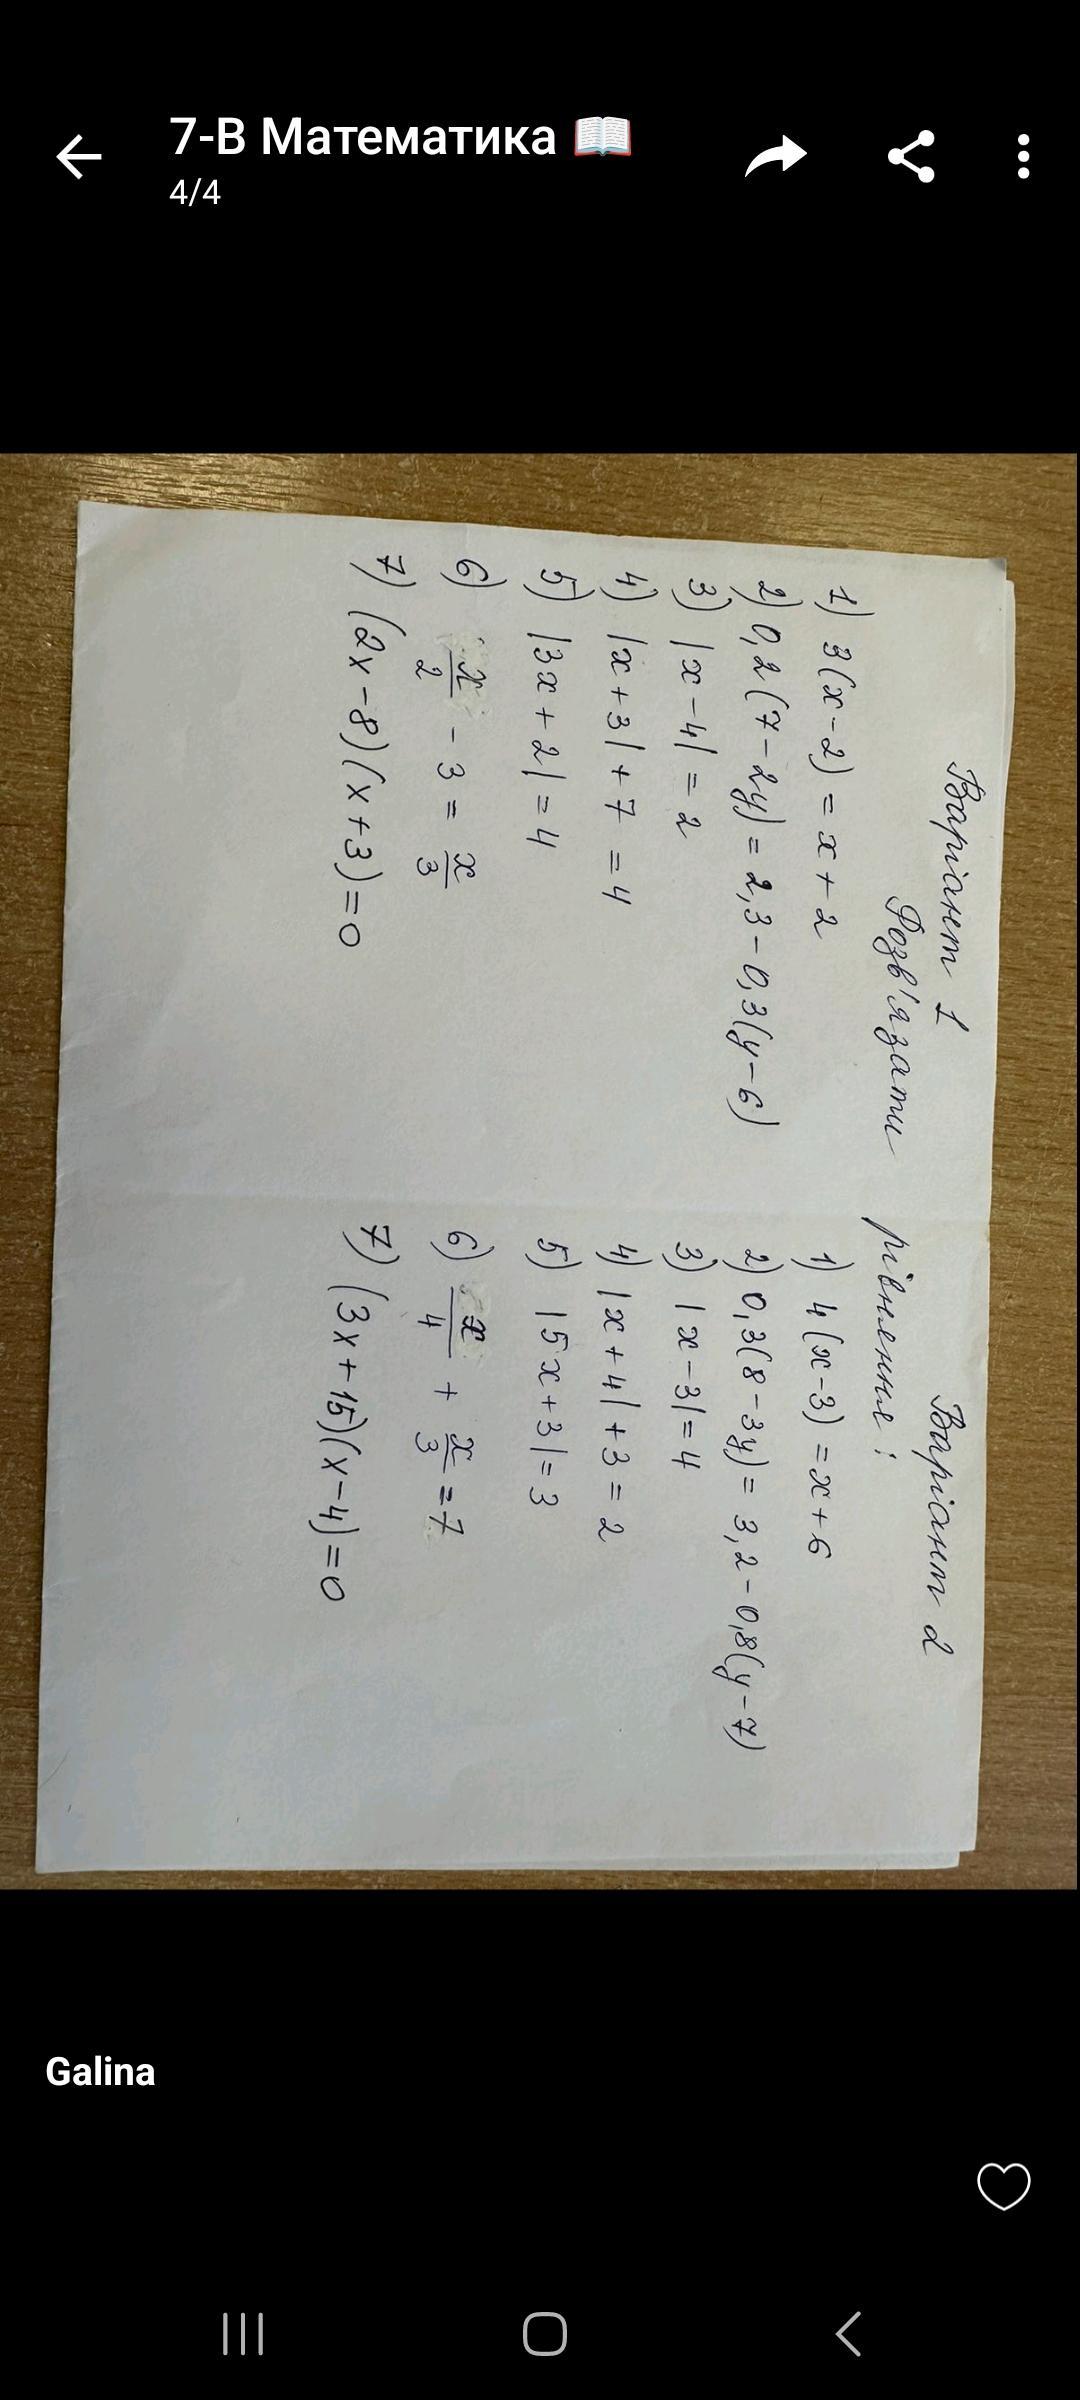 7-В Математика 📖
4/4
Варіант 1
Розв'язати
1) 3(x-2) = x + 2
2) 0,2(7-2y) = 2,3 - 0,3(y-6)
3) |x-4| = 2
4) |x+3| + 7 = 4
5) |3x+2| = 4
6) x/2 - 3 = x/3
7) (2x-8)(x+3) = 0
Варіант 2
рівняння:
1) 4(x-3) = x + 6
2) 0,3(8-3y) = 3,2 - 0,8(y-7)
3) |x-3| = 4
4) |x+4| + 3 = 2
5) |5x+3| = 3
6) x/4 + x/3 = 7
7) (3x+15)(x-4) = 0
Galina